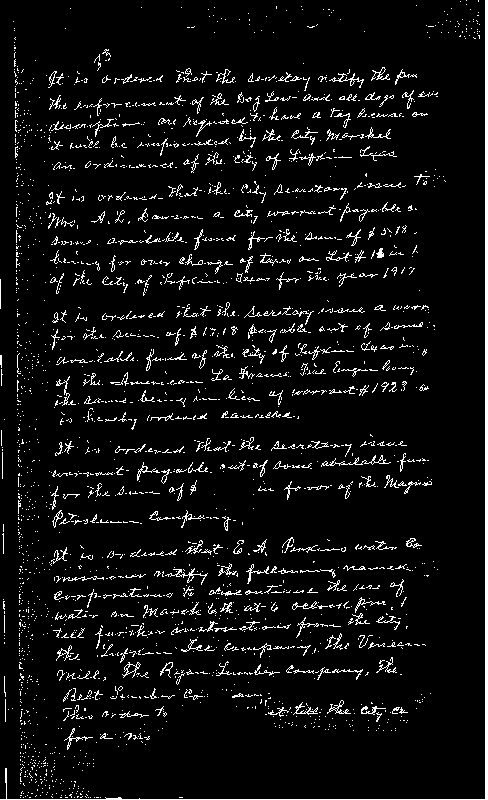 It is ordered that the secretay notify the
the enforcement of the Dog Law and all dogs of
description are required to have a tag license on
it will be impounded by the City Marshal
an ordinance of the City of Lufkin Texas
It is ordered that the City Secretary issue to
Mrs. A. L. Dawson a City warrant payable
some available fund for the sum of
being for over charge of taxes on Lot # in
of the City of Lufkin Texas for the year 1917
It is ordered that the Secretary issue a warr
for the sum of $17.18 payable out of some
available fund of the City of Lufkin Texas in
of the American La France Fire Engin Comp
the same being in lieu of warrant # 1923
is hereby ordered cancelled.
It is ordered that the secretary issue
warrant payable out of some available fun
for the sum of $ in favor of the Magno
Petroleum Company.
It is ordered that E. A. Perkins water Co
missioner notify the following named
Corporations to discontinue the use of
water on March 6th at 6 oclock pm.
till further instructions from the City,
the Lufkin Ice Company, the
Mill, The Ryan Lumber Company, the
Belt Lumber Co
This order to till the City
for a